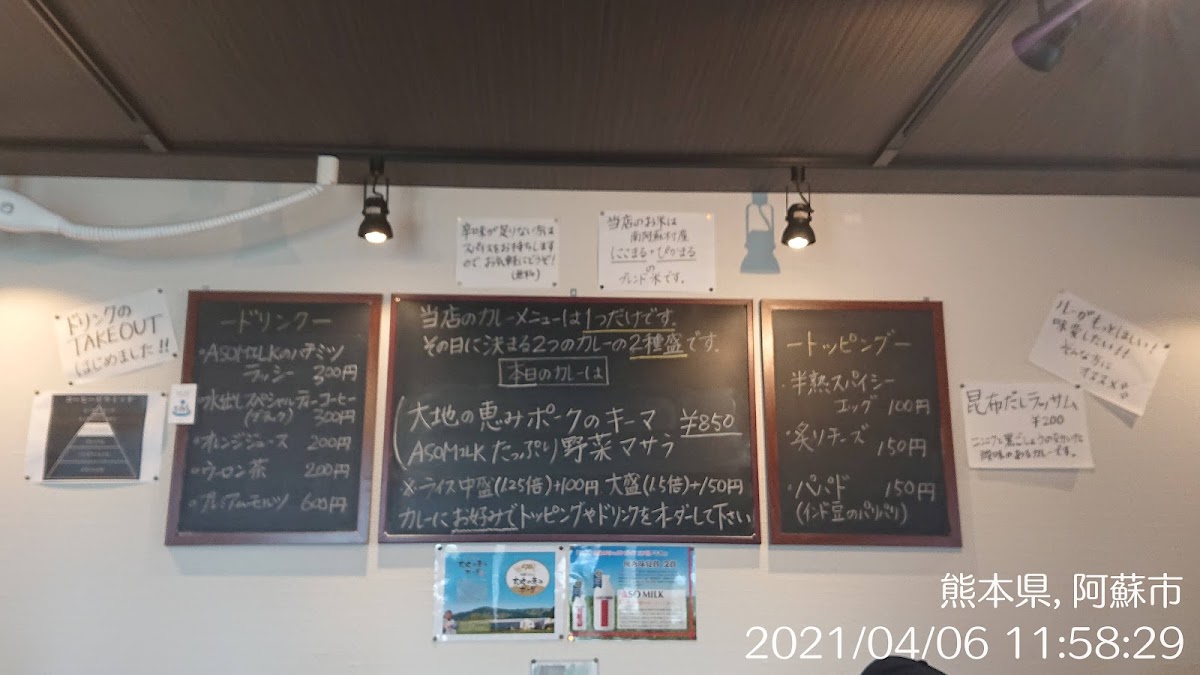 辛味が足りない方は
スパイスをお持ちします
ので お気軽にどうぞ!
(無料)
当店のお米は
南阿蘇村産
にこまる+ぴかまる
の
ブレンド米です。
ドリンクの
TAKEOUT
はじめました!!
ードリンクー
・ASOMILKのハチミツ
ラッシー 300円
・水出しスペシャルティーコーヒー
300円
・オレンジジュース 200円
・ウーロン茶 200円
・プレミアムモルツ 600円
当店のカレーメニューは1つだけです。
その日に決まる2つのカレーの2種盛です。
本日のカレーは
大地の恵みポークのキーマ ¥850
ASOMILKたっぷり野菜マサラ
※ライス中盛(1.25倍)+100円 大盛(1.5倍)+150円
カレーにお好みでトッピングやドリンクをオーダーして下さい
ートッピングー
・半熟スパイシー
エッグ 100円
・炙りチーズ 150円
・パパド 150円
(インド豆のパリパリ)
ルーがもっとほしい!
味変したい!
そんな方に
オススメ
昆布だしラッサム
¥200
ニンニクと黒こしょうの
酸味のあるカレーです。
ASO MILK
熊本県, 阿蘇市
2021/04/06 11:58:29